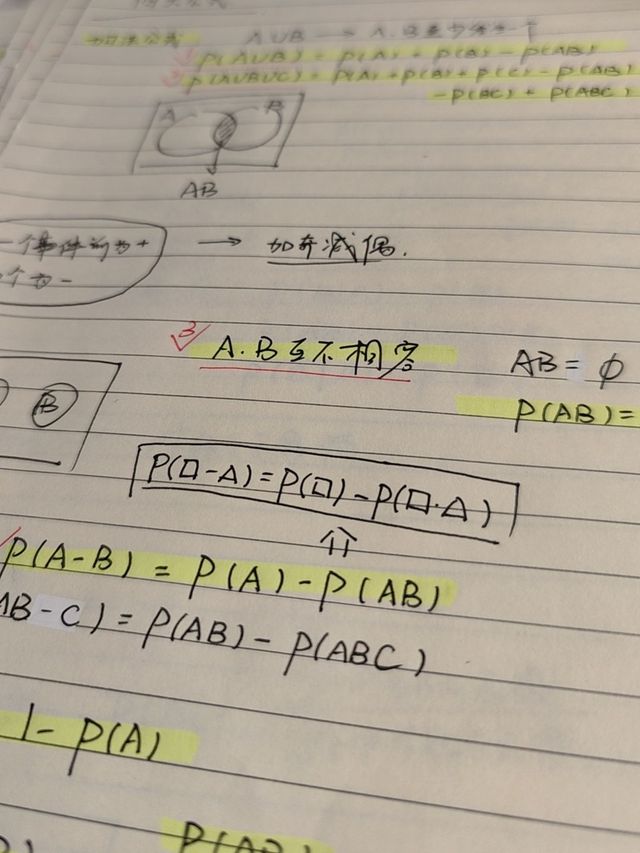 加法公式 AUB → A.B至少发生一个
P(AUB) = P(A) + P(B) - P(AB)
P(AUBUC) = P(A) + P(B) + P(C) - P(AB)
- P(BC) + P(ABC)
A B
AB
一个事件前为+
个为-
→ 加奇减偶.
3 A.B互不相容
AB = ϕ
B
P(AB) =
P(□-△) = P(□) - P(□·△)
P(A-B) = P(A) - P(AB)
AB-C) = P(AB) - P(ABC)
1- P(A)